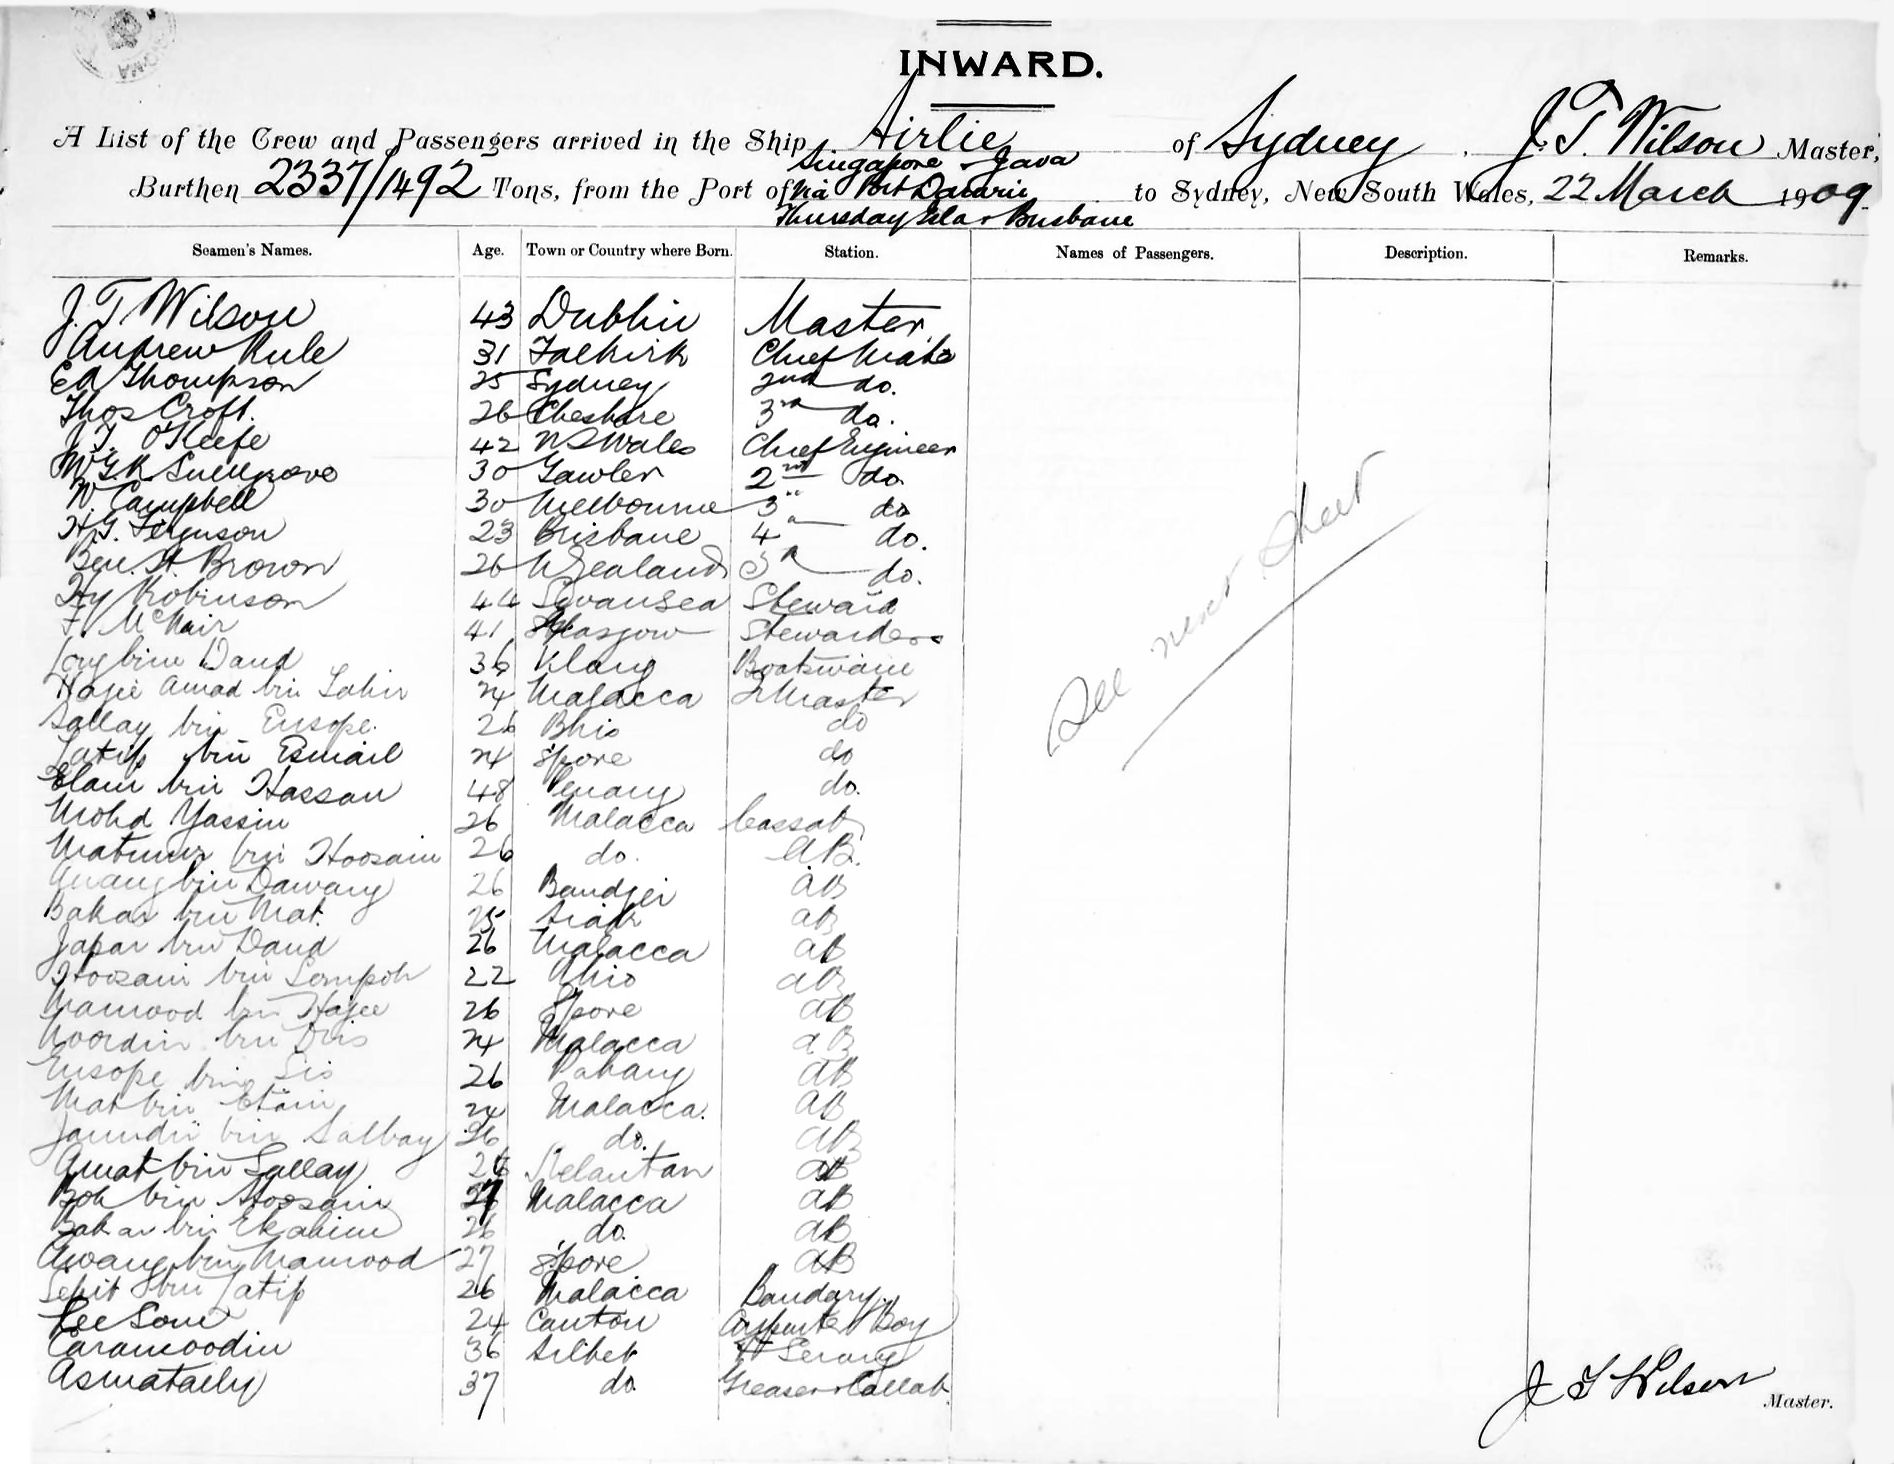 INWARD.
A List of the Crew and Passengers arrived in the Ship Airlie of Sydney, J. T. Wilson Master,
Burthen 2337/1492 Tons, from the Port of Singapore - Java via Port Darwin Thursday Isla + Brisbane to Sydney, New South Wales, 22 March 1909
Seamen's Names. Age. Town or Country where Born. Station. Names of Passengers. Description. Remarks.
J. T Wilson 43 Dublin Master
Andrew Rule 31 Falkirk Chief Mate
Ed Thompson 25 Sydney 2nd do.
Thos Croft. 26 Cheshire 3rd do.
J. T. O'Keefe 42 N S Wales Chief Engineer
30 Gawler 2nd do
W Campbell 30 Melbourne 3 " do
H. G. Ferguson 23 Brisbane 4 do.
Ben. H. Brown 26 N Zealand 5 do.
Hy Robinson 44 Swansea Steward
F. McNair 41 Glasgow Stewardess
bin Daud 36 Klang Boatswain
Hajie Amad bin Tahir 24 Malacca QrMaster
Sallay bin Eusope. 26 Rhio do
Latip bin Esmail 24 S'pore do
Elam bin Hassan 48 Penang do.
Mohd Yassin 26 Malacca Cassab
bin Hoosain 26 do. AB.
Awang bin Dawang 26 AB
Bakar bin Mat. 25 Siak AB
Japar bin Daud 26 Malacca AB
Hoosain bin Sompoh 22 Rhio AB
Mamood bin Hajee 26 S'pore AB
Noordin bin Dris 24 Malacca AB
Eusope bin Sis 26 Pahang AB
Mat bin Etam 24 Malacca. AB
bin Salbay 26 do. AB
Amat bin Sallay 26 Kelantan AB
Boh bin Hoosain 27 Malacca AB
Bakar bin Ebrahim 26 do. AB
Awang bin Mamood 27 S'pore AB
bin Latip 26 Malacca Bandary
24 Canton Carpenter Boy
Caramoodin 36 Silhet Serang
Asmatally 37 do Greaser + Cassab
See next sheet
J T Wilson
Master.